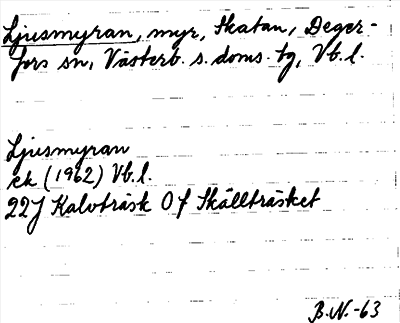 Ljusmyran, myr, Skatan, Deger-
fors sn, Västerb. s. doms. tg, Vb. l.
Ljusmyran
ek (1962) Vb. l.
22J Kalvträsk 0f Skällträsket
B.N.-63